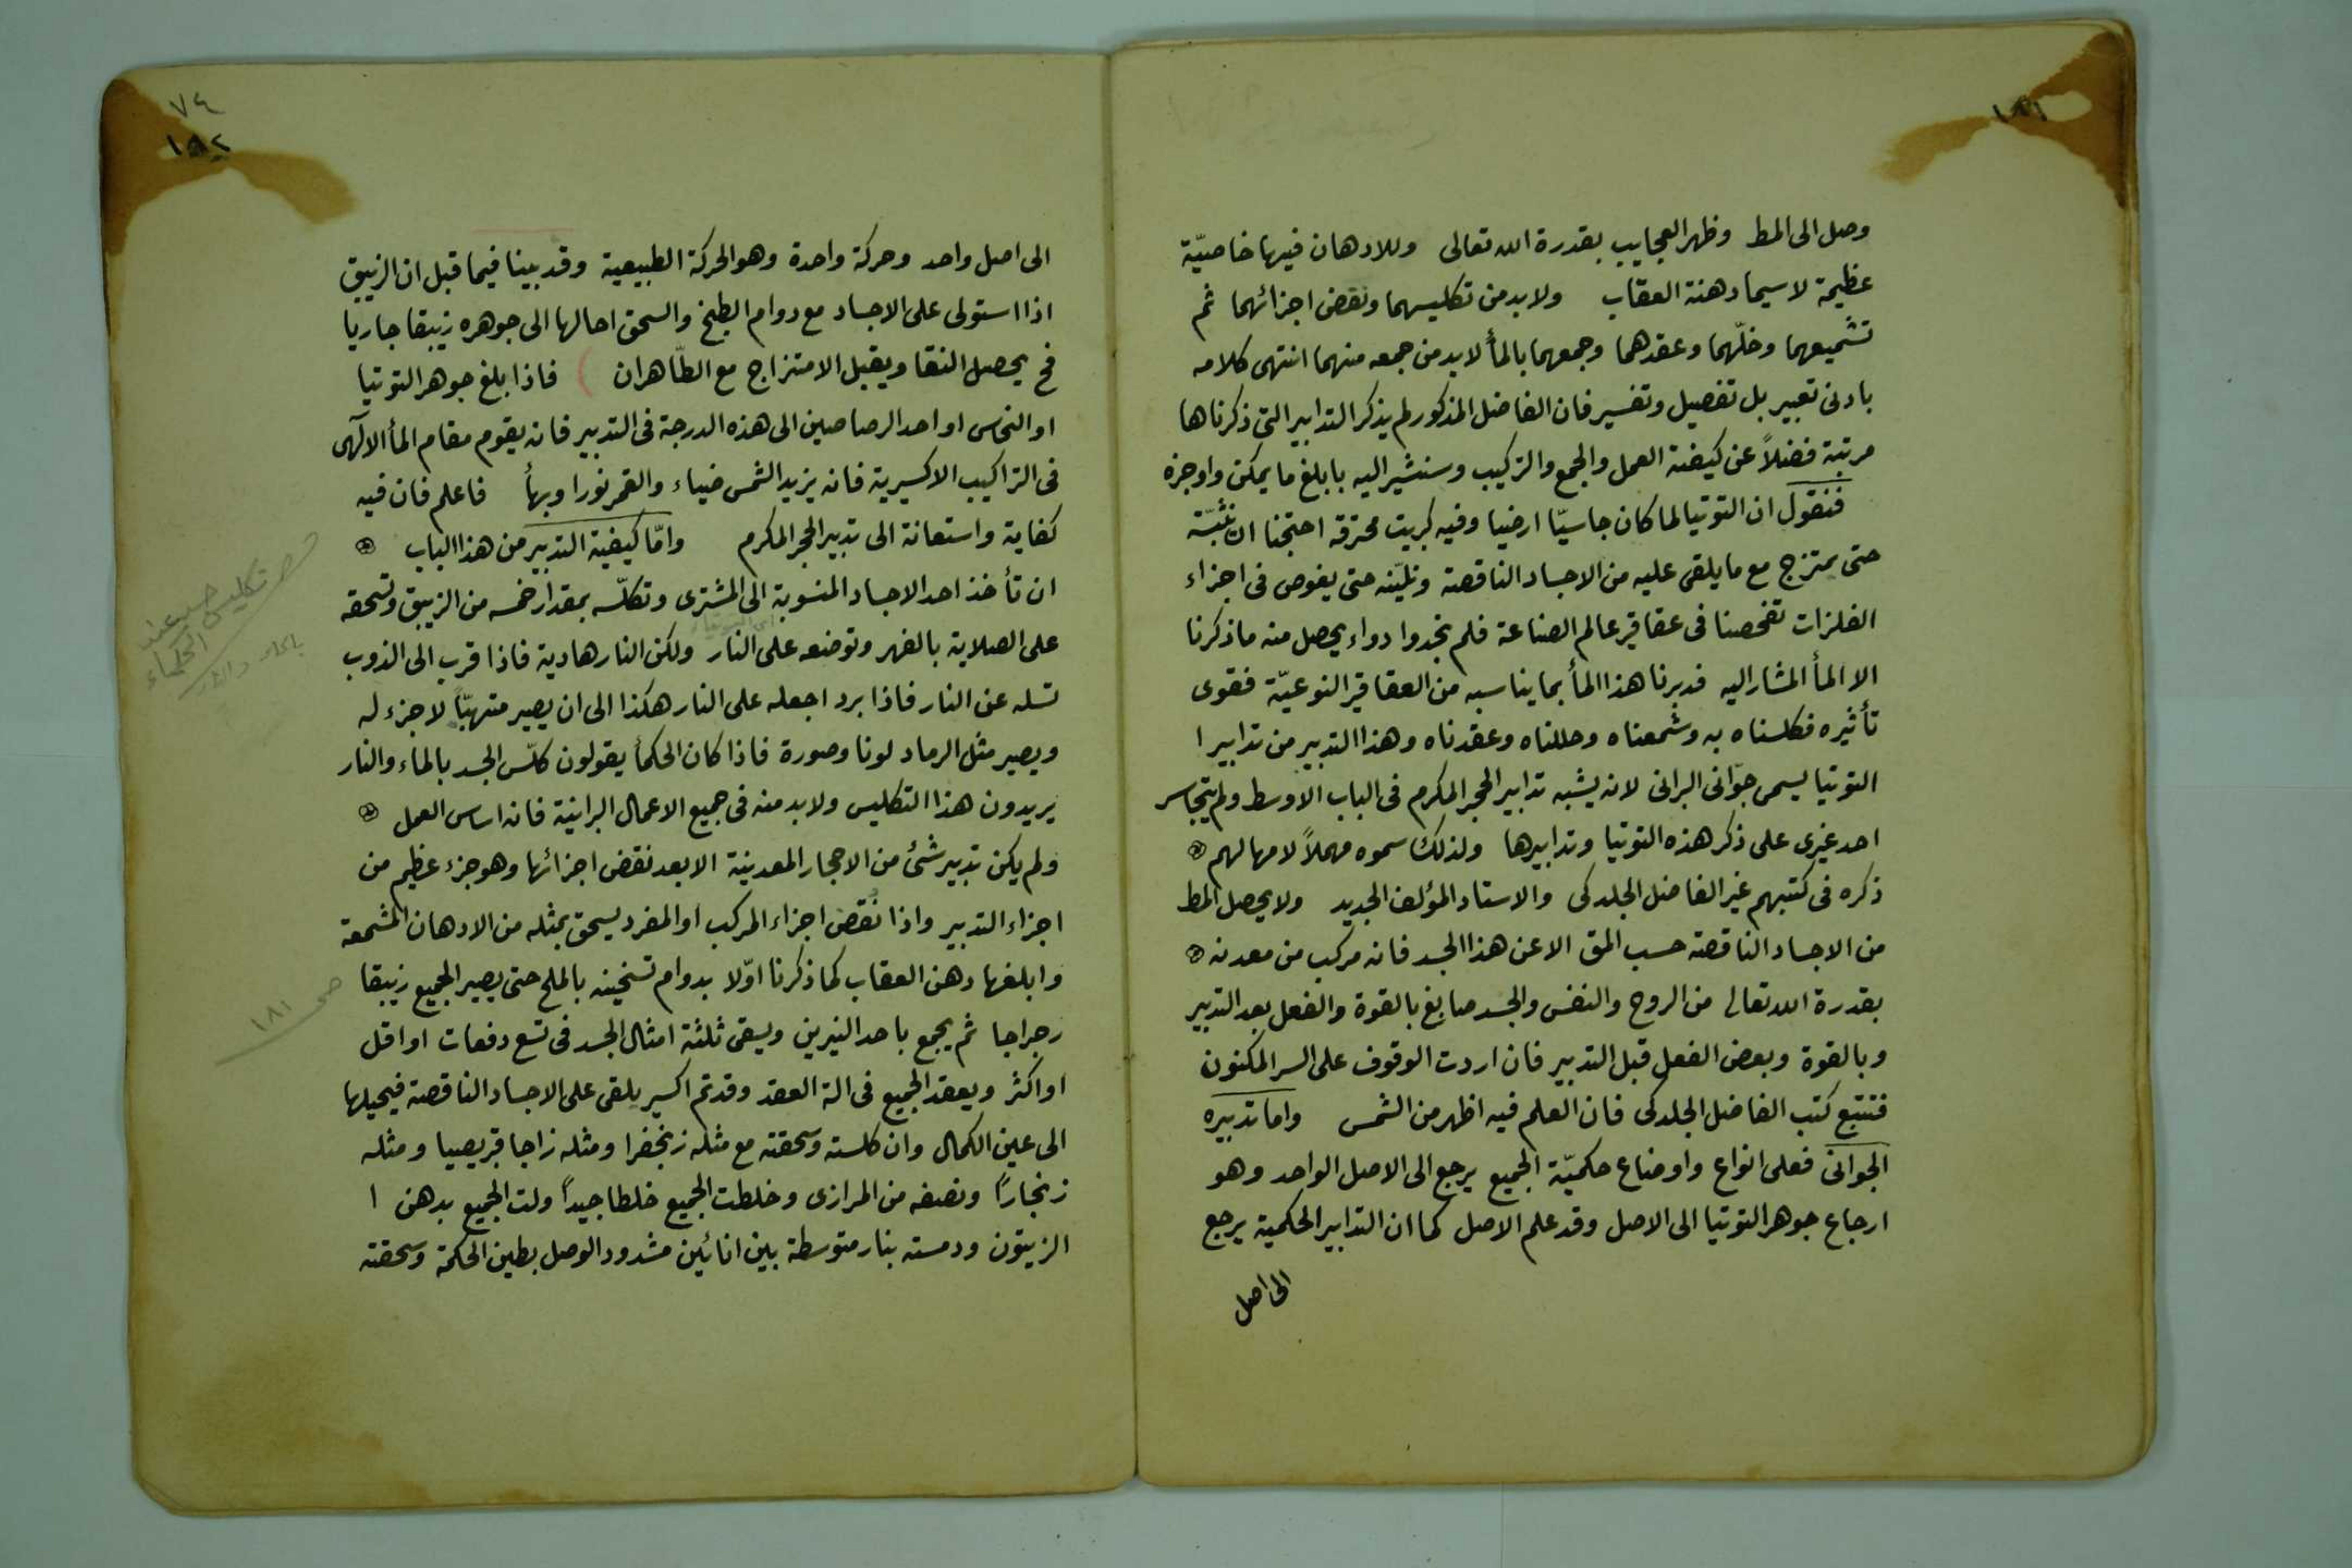 وصل الى المط وظهر العجايب بقدرة الله تعالى وللادهان فيها خاصيّة
عظيمة لا سيما دهنة العقاب ولا بد من تكليسهما ونقض اجزائهما ثم
تشميعهما وحلّهما وعقدهما وجمعهما بالمأ لا بد من جمعه منهما انتهى كلامه
بادنى تعبير بل تفصيل وتفسير فان الفاضل المذكور لم يذكر التدابير التى ذكرناها
مرتبة فضلاً عن كيفية العمل والجمع والتركيب وسنشير اليه بابلغ ما يمكن واوجزه
فنقول ان التوتيا لما كان جاسيّا ارضيا وفيه كبريت محترقة احتجنا ان
حتى يمتزج مع ما يلقى عليه من الاجساد الناقصة ونليّنه حتى يغوص فى اجزاء
الفلزات تفحصنا فى عقاقير عالم الصناعة فلم نجدوا دواء يحصل منه ما ذكرنا
الا المأ المشار اليه فدبرنا هذا المأ بما يناسبه من العقاقير النوعيّة فقوى
تأثيره فكلسناه به وشمعناه وحللناه وعقدناه وهذا التدبير من تدابير ا
التوتيا ليسمى جوّانى البرانى لانه يشبه تدابير الحجر المكرم فى الباب الاوسط ولم يتجاسر
احد غيرى على ذكر هذه التوتيا وتدابيرها ولذلك سموه مهملاً لامهالهم
ذكره فى كتبهم غير الفاضل الجلدكى والاستاد المؤلف الجديد ولا يحصل المط
من الاجساد الناقصة حسب المق الا عن هذا الجسد فانه مركب من معدنه
بقدرة الله تعالى من الروح والنفس والجسد صابغ بالقوة والفعل بعد التدبير
وبالقوة وبعض الفعل قبل التدبير فان اردت الوقوف على السر المكنون
فتتبع كتب الفاضل الجلدكى فان العلم فيه اظهر من الشمس واما تدبيره
الجوانى فعلى انواع واوضاع حكميّة الجميع يرجع الى الاصل الواحد وهو
ارجاع جوهر التوتيا الى الاصل وقد علم الاصل كما ان التدابير الحكمية يرجع
الى اصل
٧٤
١٨٢
الى اصل واحد وحركة واحدة وهو الحركة الطبيعية وقد بينا فيما قبل ان الزيبق
اذا استولى على الاجساد مع دوام الطبخ والسحق احالها الى جوهره زيبقا جاريا
فح يحصل النقا ويقبل الامتزاج مع الطّاهران فاذا بلغ جوهر التوتيا
او النحاس او احد الرصاصين الى هذه الدرجة فى التدبير فانه يقوم مقام المأ الآلهى
فى التراكيب الاكسيرية فانه يزيد الشمس ضياء والقمر نورا وبهأ فاعلم فان فيه
كفاية واستعانة الى تدبير الحجر المكرم وامّا كيفية التدبير من هذا الباب
ان تأخذ احد الاجساد المنسوبة الى المشترى وتكلّسه بمقدار خمسه من الزيبق وتسحقه
على الصلاية بالفهر وتوضعه على النار ولكن النار هادية فاذا قرب الى الذوب
تسله عن النار فاذا برد اجعله على النار هكذا الى ان يصير متهبّاً لا جزء له
ويصير مثل الرماد لونا وصورة فاذا كان الحكمأ يقولون كلّس الجسد بالماء والنار
يريدون هذا التكليس ولا بد منه فى جميع الاعمال البرانية فانه اساس العمل
ولم يكن تدبير شئ من الاحجار المعدنية الا بعد نقض اجزائها وهو جزء عظيم من
اجزاء التدبير واذا نقض اجزاء المركب او المفرد يسحق بمثله من الادهان المشمعة
وابلغها دهن العقاب كما ذكرنا اوّلا بدوام تسخينه بالملح حتى يصير الجميع زيبقا
رجراجا ثم يجمع باحد النيرين ويسقى ثلثة امثال الجسد فى تسع دفعات او اقل
او اكثر ويعقد الجميع فى الة العقد وقد تم اكسير يلقى على الاجساد الناقصة فيحيلها
الى عين الكمال وان كلسته وسحقته مع مثله زنجفرا ومثله زاجا قبريصيا ومثله
زنجاراً ونصفه من المرازى وخلطت الجميع خلطا جيداً ولت الجميع بدهن ا
الزيتون ودمسته بنار متوسطة بين انائين مشدود الوصل بطين الحكمة وسحقته
تكليس جسد عند
الحكماء
بالماء والنار
صح ١٨١